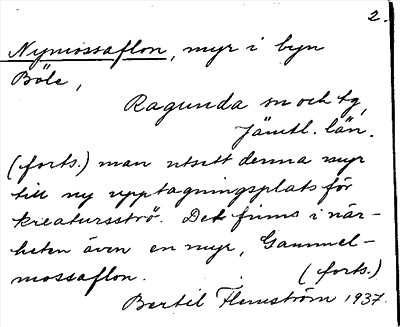 2.
Nymossaflon, myr i byn
Böle,
Ragunda sn och tg,
Jämtl. län.
(forts.) man utsett denna myr
till ny upptagningsplats för
kreatursströ. Det finns i när-
heten även en myr, Gammel-
mossaflon. (forts.)
Bertil Flemström 1937.